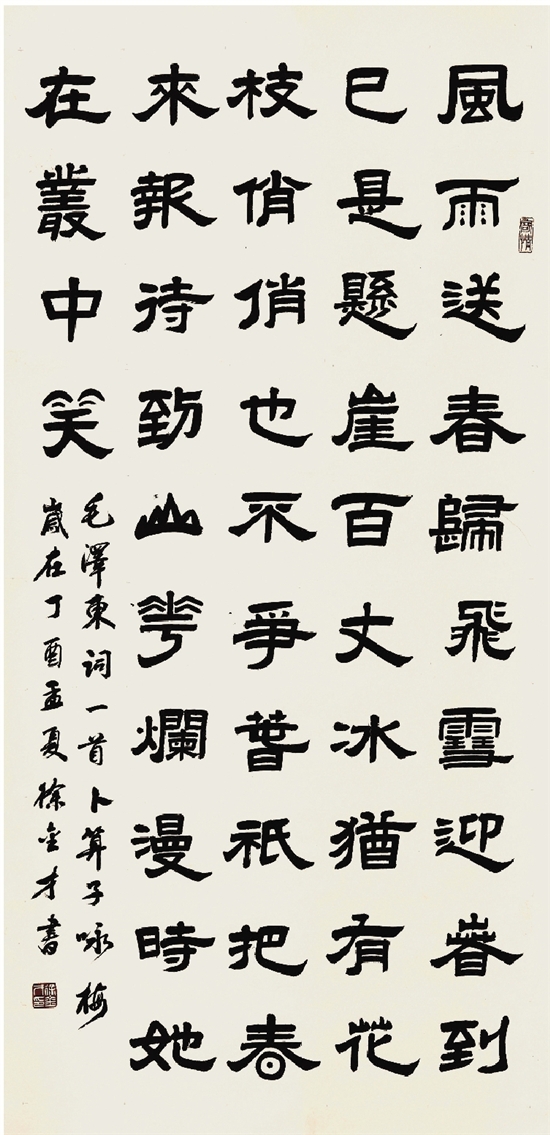 風雨送春歸飛雪迎春到
已是懸崖百丈冰猶有花
枝俏俏也不爭春祇把春
來報待到山華爛漫時她
在叢中笑
毛澤東詞一首卜算子咏梅
歲在丁酉孟夏徐金才書